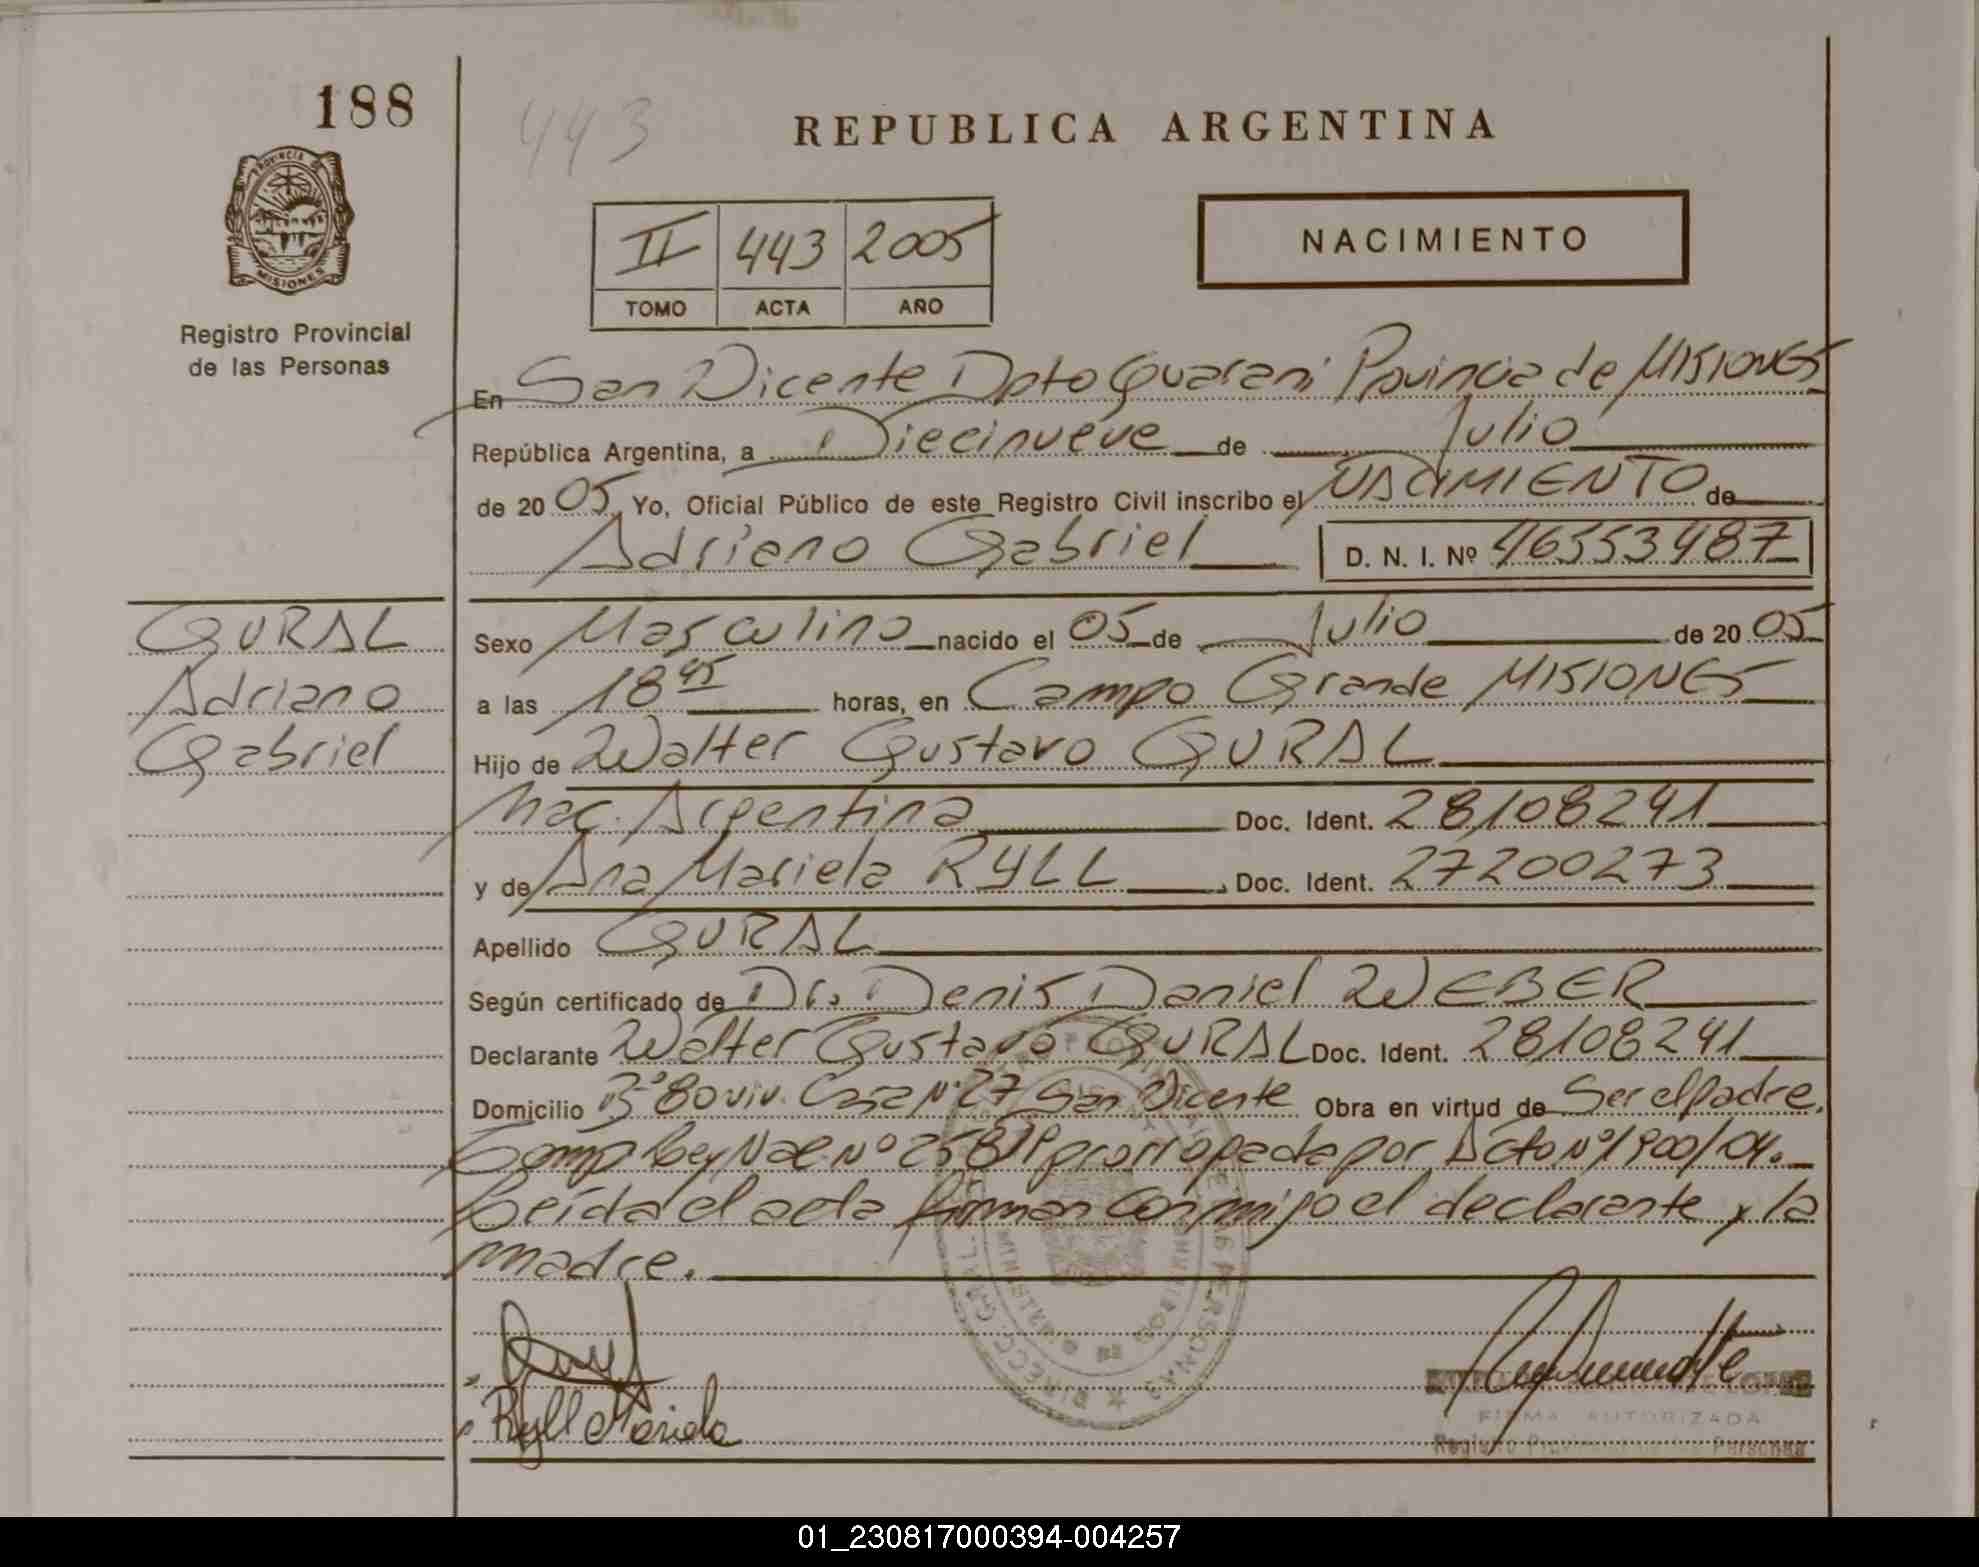 188
443
REPUBLICA ARGENTINA
PROVINCIA DE
MISIONES
II 443 2005
TOMO ACTA AÑO
NACIMIENTO
Registro Provincial
de las Personas
En San Vicente Dpto Guarani Provincia de MISIONES
República Argentina, a Diecinueve de Julio
de 20 05 Yo, Oficial Público de este Registro Civil inscribo el NACIMIENTO de
Adriano Gabriel D. N. I. Nº 46353487
GURAL
Adriano
Gabriel
Sexo Masculino nacido el 05 de Julio de 20 05
a las 18 45 horas, en Campo Grande MISIONES
Hijo de Walter Gustavo GURAL
Nac. Argentina Doc. Ident. 28108241
y de Ana Mariela RYLL Doc. Ident. 27200273
Apellido GURAL
Según certificado de Dr. Denis Daniel WEBER
Declarante Walter Gustavo GURAL Doc. Ident. 28108241
Domicilio Bº 80 viv. Casa Nº 27 San Vicente Obra en virtud de Ser el padre.
Ley Nac Nº prorrogada por Dcto Nº 1900/04.
Leída el acta firman conmigo el declarante y la
madre.
Ryll Mariela
FIRMA AUTORIZADA
Registro Provincial de las Personas
01_230817000394-004257